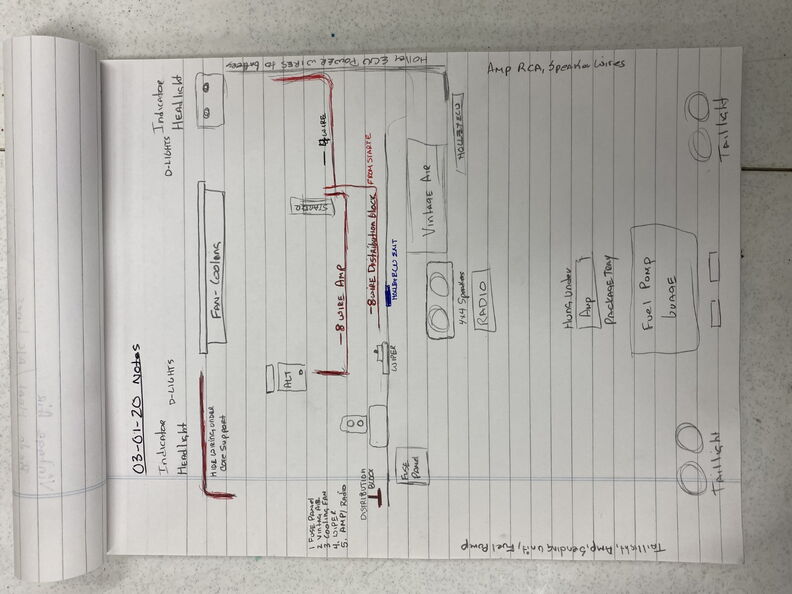 03-01-20 Notes
Indicator
Headlight
D-LIGHTS
Indicator
Headlight
D-LIGHTS
HIDE WIRING UNDER
Core Support
FAN-Cooling
ALT
STARTER
1 FUSE PANEL
2 Vintag AIR
3-COOLING FAN
4. WIPER
5. AMP/RADIO
DISTRIBUTION
BLOCK
FUSE
PANEL
WIPER
-8 WIRE AMP
-8 WIRE Distribution block
FROM STARTE
4 WIRE
HOLLEY ECU POWER WIRES to battery
HOLLEY ECU ENT
Vintage AIR
HOLLEY ECU
4x4 Speaker
RADIO
AMP RCA, Speaker Wires
Hung Under
Amp
PACKAGE TRAY
Fuel Pump
Taillight
Taillight
Taillight, Amp, Sending Unit, Fuel Pump